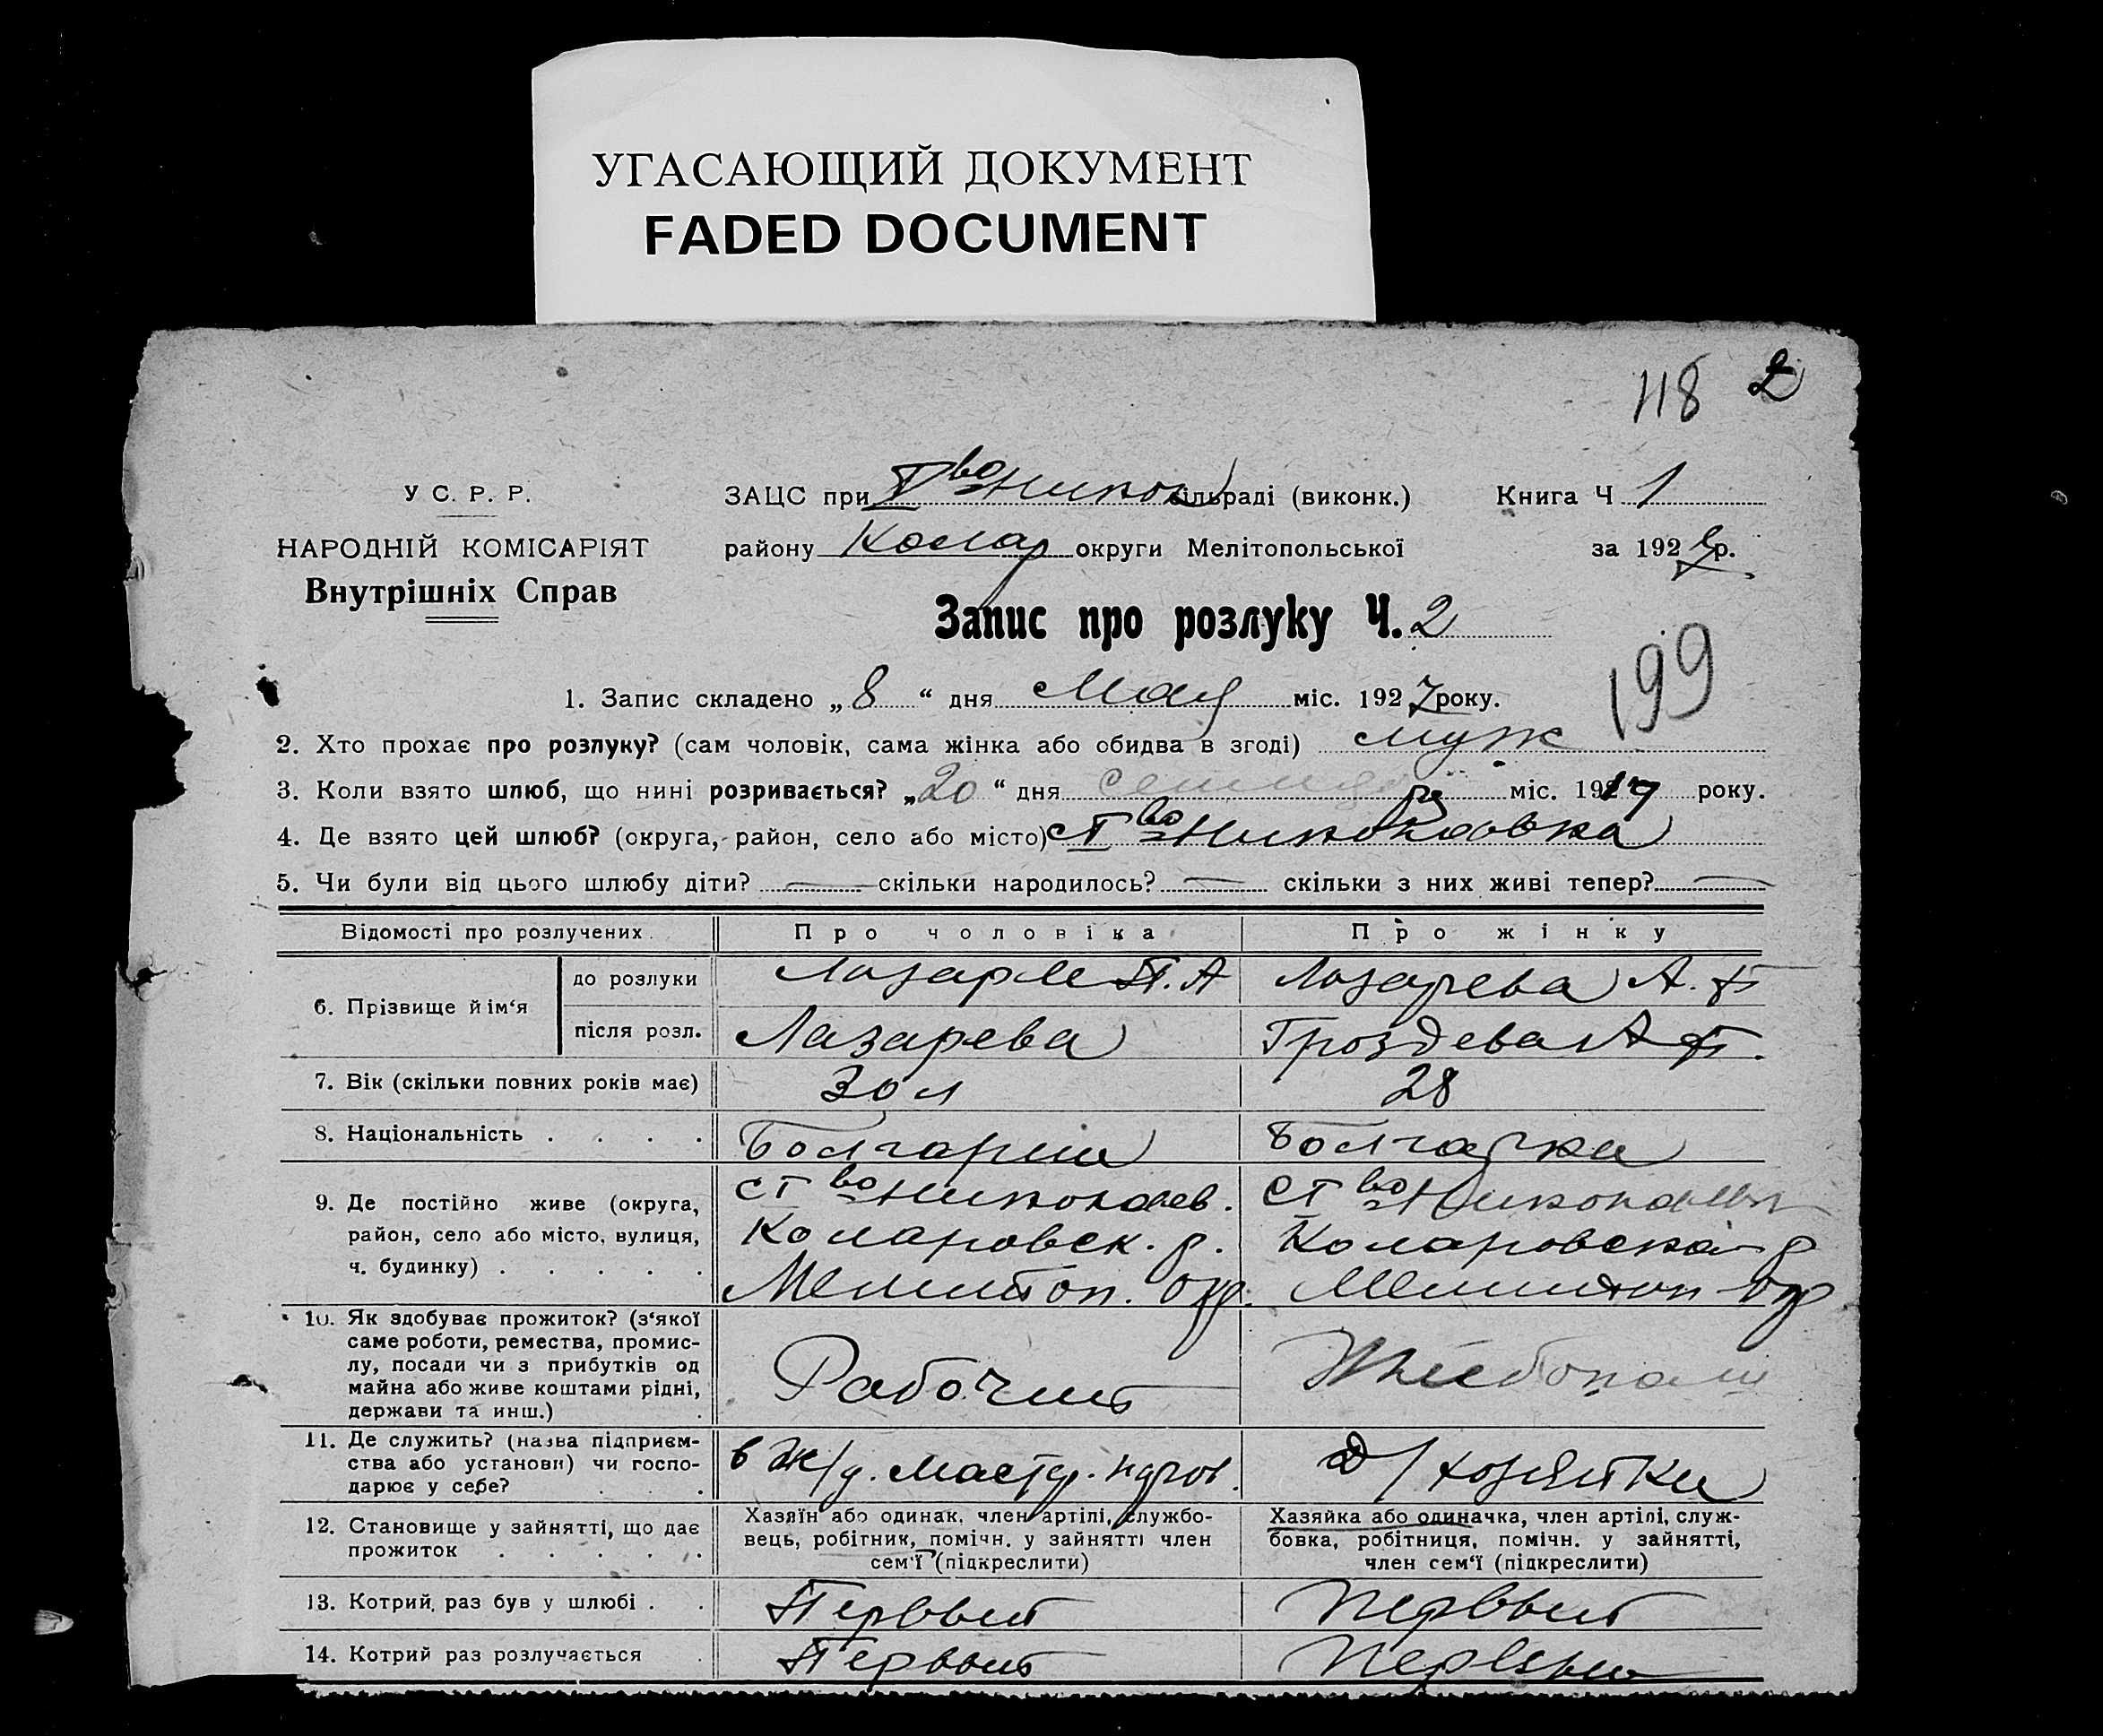 УГАСАЮЩИЙ ДОКУМЕНТ
FADED DOCUMENT
118 2
У С. Р. Р.
НАРОДНІЙ КОМІСАРІЯТ
Внутрішніх Справ
ЗАЦС при Ств Никол сільраді (виконк.) Книга Ч 1
району Колар округи Мелітопольської за 192 р.
Запис про розлуку Ч. 2
199
1. Запис складено „ 8 “ дня Мая міс. 1927 року.
2. Хто прохає про розлуку? (сам чоловік, сама жінка або обидва в згоді) муж
3. Коли взято шлюб, що нині розривається? „ 20 “ дня міс. 1917 року.
4. Де взято цей шлюб? (округа, район, село або місто) Ст во Николаовка
5. Чи були від цього шлюбу діти? — скільки народилось? — скільки з них живі тепер? —
Відомості про розлучених. Про чоловіка Про жінку
6. Прізвище й ім‘я
до розлуки Лазарев П. А Лазарева А. Ф
після розл. Лазарева Гроздева А Ф.
7. Вік (скільки повних років має) 30 л 28
8. Національність . . . . Болгарин Болгарка
9. Де постійно живе (округа,
район, село або місто, вулиця,
ч. будинку) . . . . .
Ст во Николаев.
Коларовск. р.
Мелитоп. окр.
Ст во Николаевк
Коларовска р
Мелитоп окр
10. Як здобуває прожиток? (з‘якої
саме роботи, ремества, промис-
лу, посади чи з прибутків од
майна або живе коштами рідні,
держави та инш.) .
Рабочий
11. Де служить? (назва підприєм-
ства або установи) чи госпо-
дарює у себе? . . .
в Ж/д. мастер.
Д/хозяйки
12. Становище у зайнятті, що дає
прожиток . . . . .
Хазяїн або одинак, член артілі, службо-
вець, робітник, помічн. у зайнятті член
сем‘ї (підкреслити)
Хазяйка або одиначка, член артілі, служ-
бовка, робітниця, помічн. у зайнятті,
член сем‘ї (підкреслити)
13. Котрий раз був у шлюбі . . Первый Первый
14. Котрий раз розлучається . Первый Первый